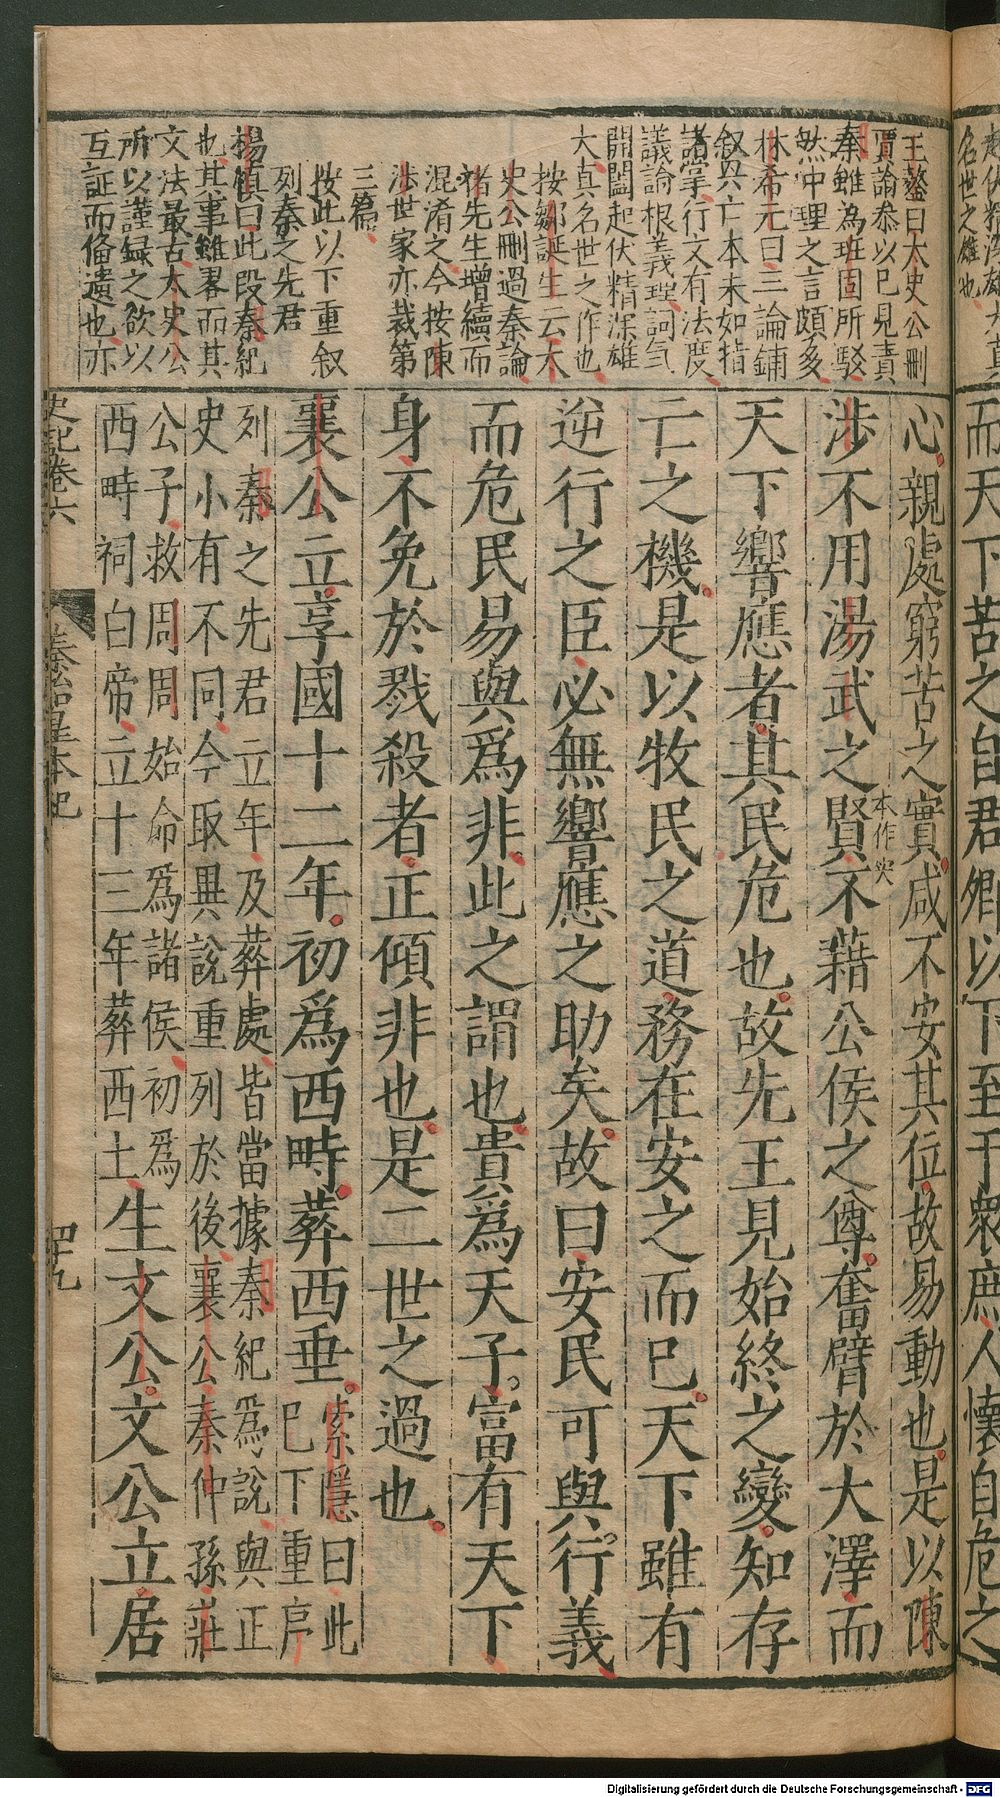 而天下苦之自君卿以下至于衆庶人懷自危之
名世之雄也
王鏊曰太史公刪
賈論叅以已見責
秦雖為班固所駁
然中理之言頗多
林希元曰三論鋪
叙興亡本末如指
諸掌行文有法度
議論根義理詞气
開闔起伏精深雄
大真名世之作也
按鄒誕生云太
史公刪過秦論
褚先生增續而
混淆之今按陳
涉世家亦裁第
三篇
按此以下重叙
列秦之先君
楊慎曰此段秦紀
也其事雖畧而其
文法最古太史公
所以謹録之欲以
互証而俻遺也亦
心親處窮苦之實咸不安其位故易動也是以陳
本作
涉不用湯武之賢不藉公侯之尊奮臂於大澤而
天下響應者其民危也故先王見始終之變知存
亡之機是以牧民之道務在安之而已天下雖有
逆行之臣必無響應之助矣故曰安民可與行義
而危民易與為非此之謂也貴為天子富有天下
身不免於戮殺者正傾非也是二世之過也
襄公立享國十二年初為西畤葬西垂索隱曰此
已下重序
列秦之先君立年及葬處皆當據秦紀為說與正
史小有不同今取異說重列於後襄公秦仲孫莊
公子救周周始命為諸侯初為
西畤祠白帝立十三年葬西土生文公文公立居
史記卷六
秦始皇本紀
四十九
Digitalisierung gefördert durch die Deutsche Forschungsgemeinschaft - DFG